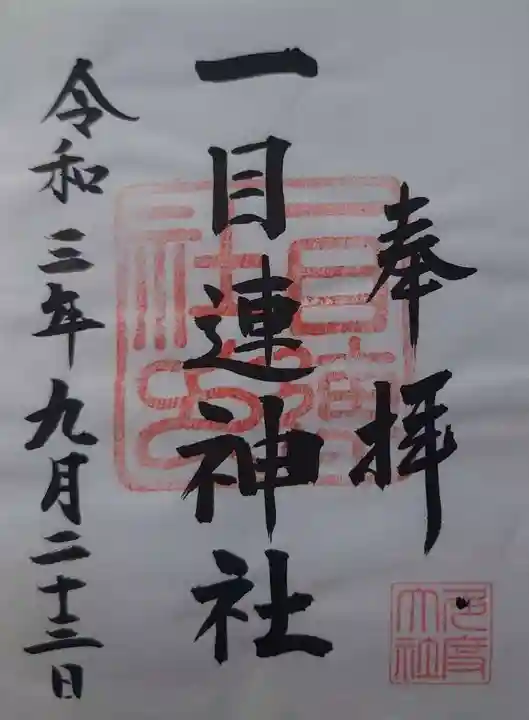 奉拝
一目連神社
令和三年九月二十三日